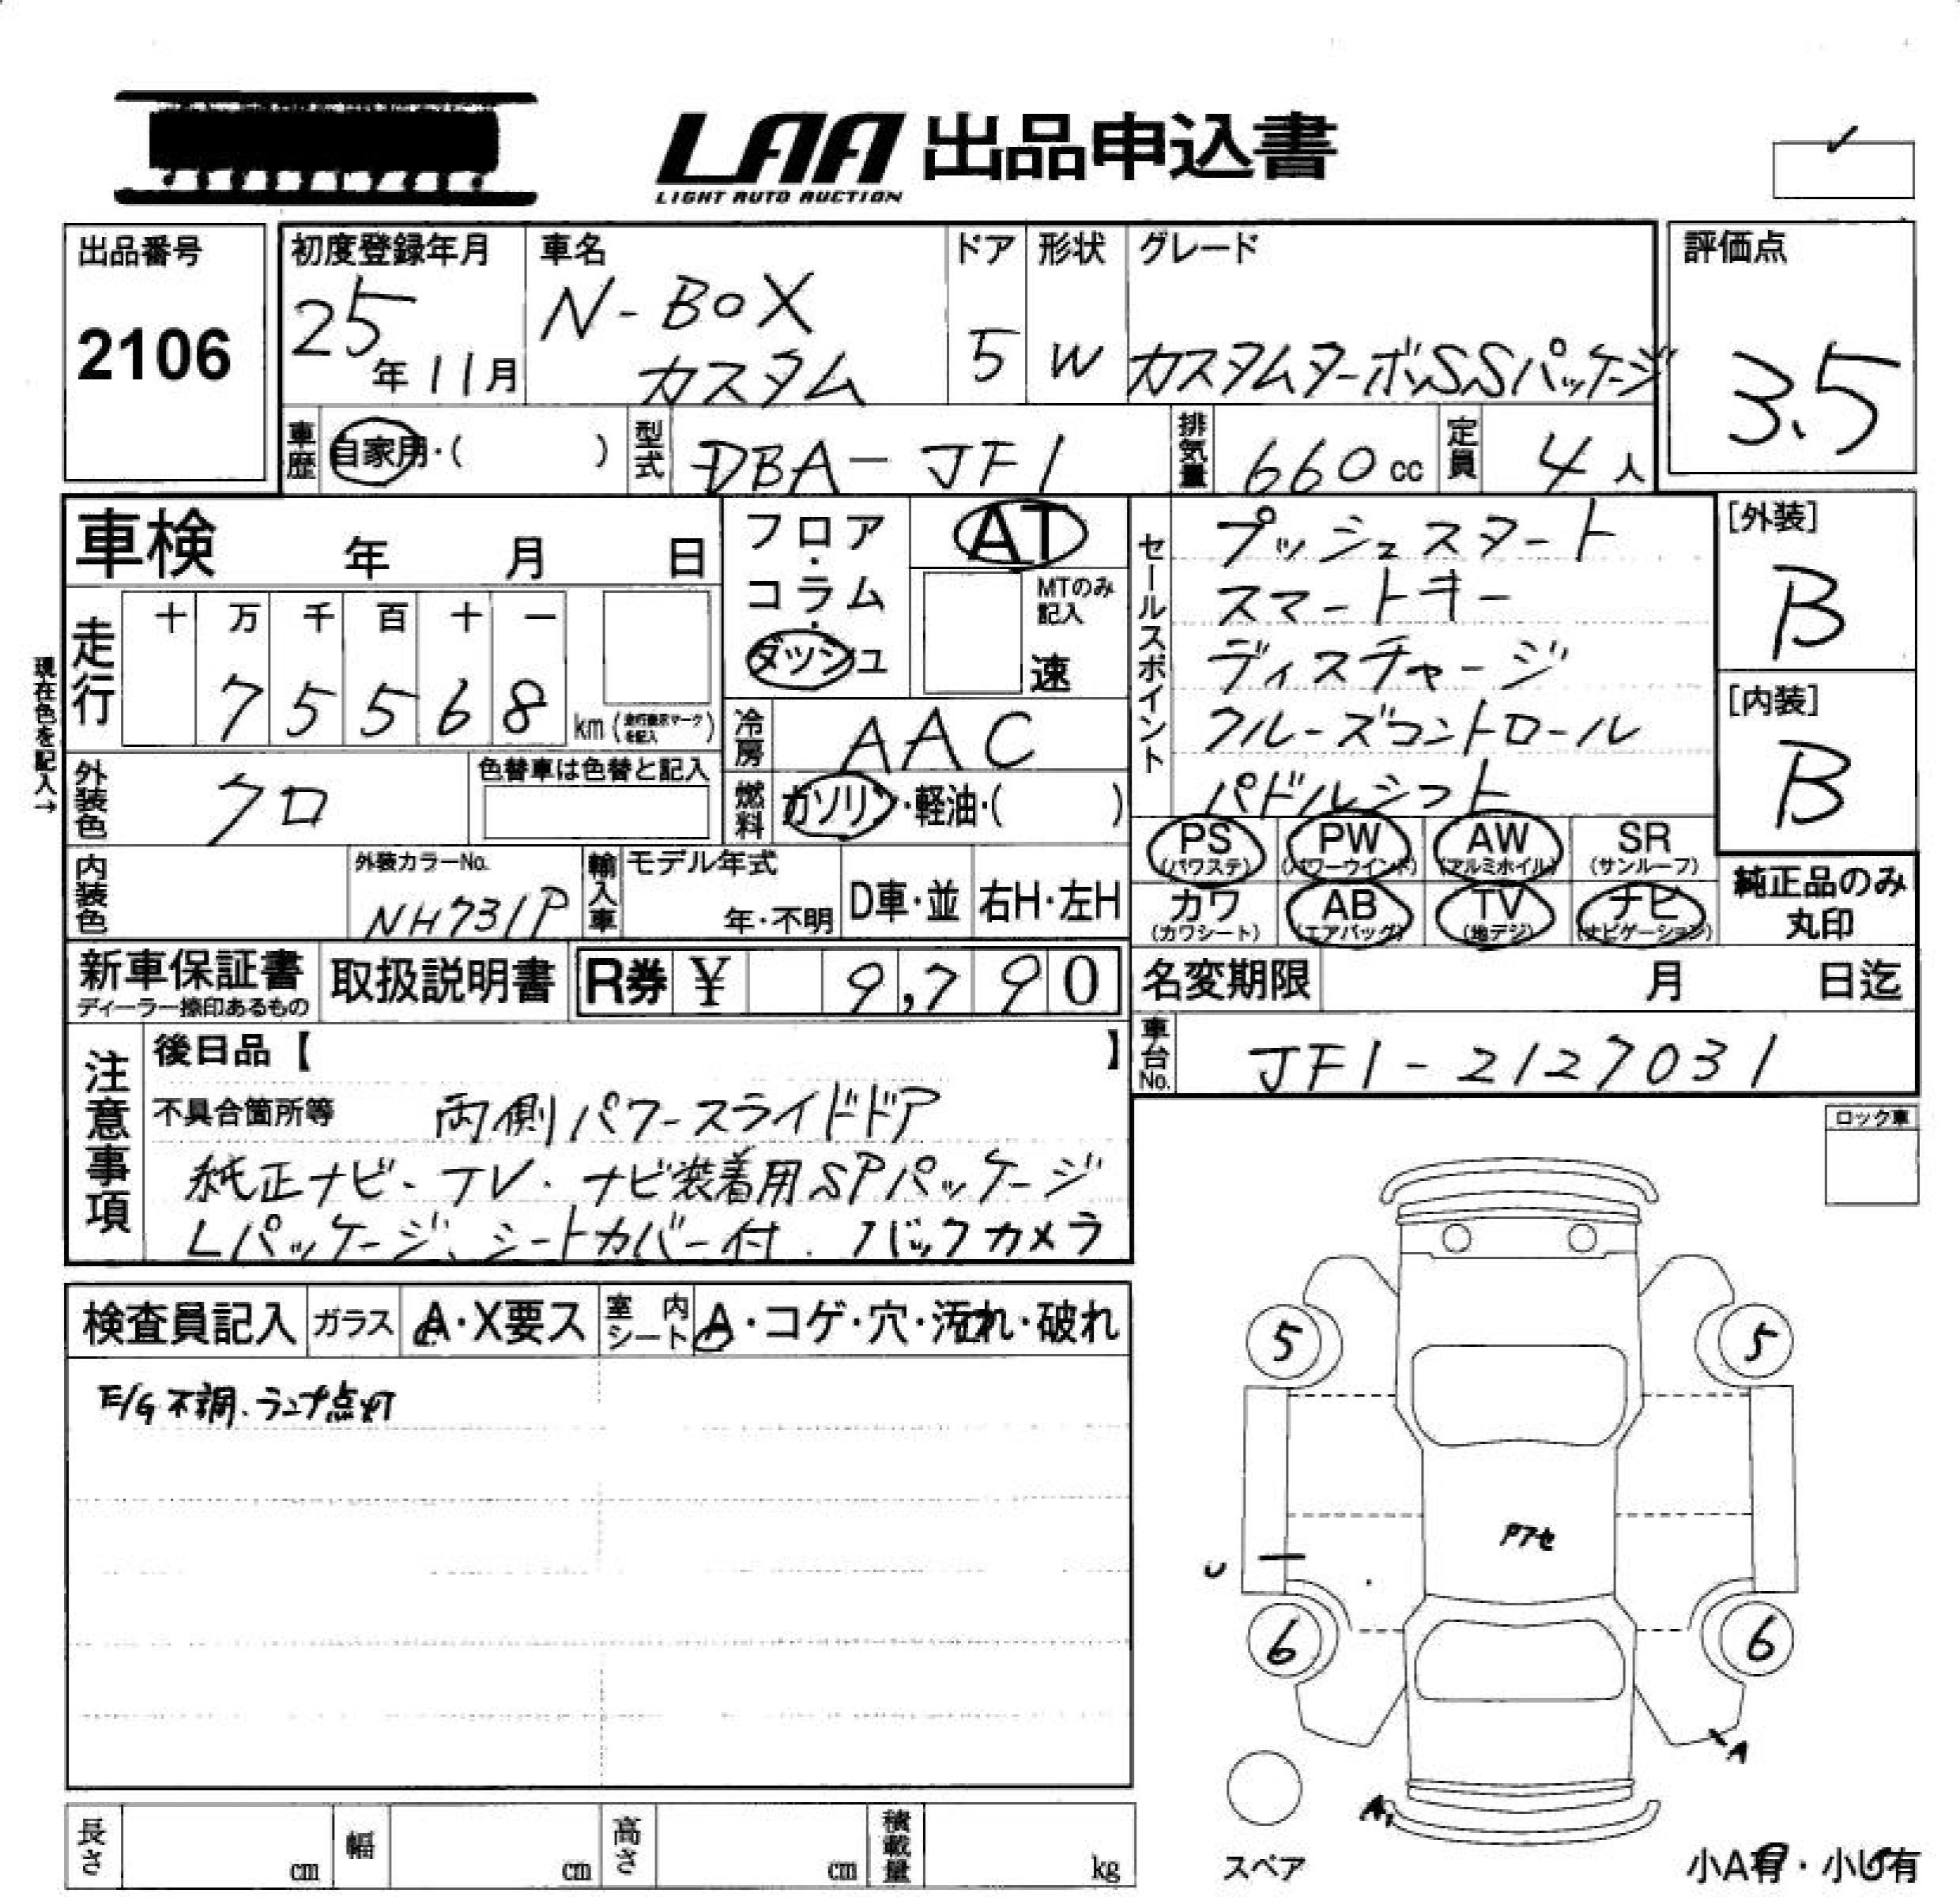 LAA 出品申込書
LIGHT AUTO AUCTION
出品番号
2106
初度登録年月
25年11月
車名
N-BOX
カスタム
ドア
5
形状
W
グレード
カスタムターボSSパッケージ
評価点
3.5
車歴
自家用・( )
型式
DBA-JF1
排気量
660cc
定員
4人
車検 年 月 日
フロア・コラム・ダッシュ
AT
MTのみ記入
速
セールスポイント
プッシュスタート
スマートキー
ディスチャージ
クルーズコントロール
パドルシフト
[外装]
B
[内装]
B
現在色を記入→
走行
十 万 千 百 十 一
7 5 5 6 8 km
冷房
AAC
外装色
クロ
色替車は色替と記入
燃料
ガソリン・軽油・( )
PS (パワステ)
PW (パワーウインド)
AW (アルミホイル)
SR (サンルーフ)
カワ (カワシート)
AB (エアバッグ)
TV (地デジ)
ナビ (ナビゲーション)
純正品のみ
丸印
内装色
外装カラーNo.
NH731P
輸入車
モデル年式
年・不明
D車・並
右H・左H
新車保証書
ディーラー捺印あるもの
取扱説明書
R券 ¥ 9,790
名変期限 月 日迄
車台No.
JF1-2127031
注意事項
後日品【 】
不具合箇所等 両側パワースライドドア
純正ナビ・TV・ナビ装着用SPパッケージ
Lパッケージ、シートカバー付、バックカメラ
ロック車
検査員記入
ガラス A・X要ス
室内シート A・コゲ・穴・汚れ・破れ
E/G不調、ランプ点灯
5 5
U
6 6
A
A1
スペア
小A有・小U有
長さ cm
幅 cm
高さ cm
積載量 kg